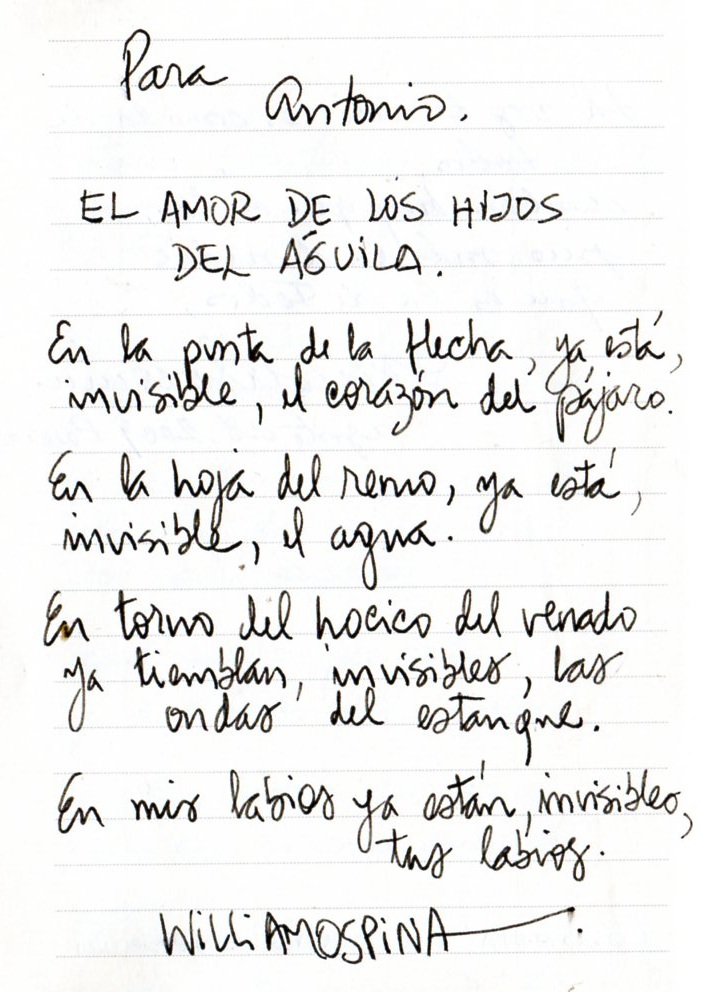 Para
Antonio.
EL AMOR DE LOS HIJOS
DEL ÁGUILA.
En la punta de la flecha, ya está,
invisible, el corazón del pájaro.
En la hoja del remo, ya está,
invisible, el agua.
En torno del hocico del venado
ya tiemblan, invisibles, las
ondas del estanque.
En mis labios ya están, invisibles,
tus labios.
WILLIAM OSPINA